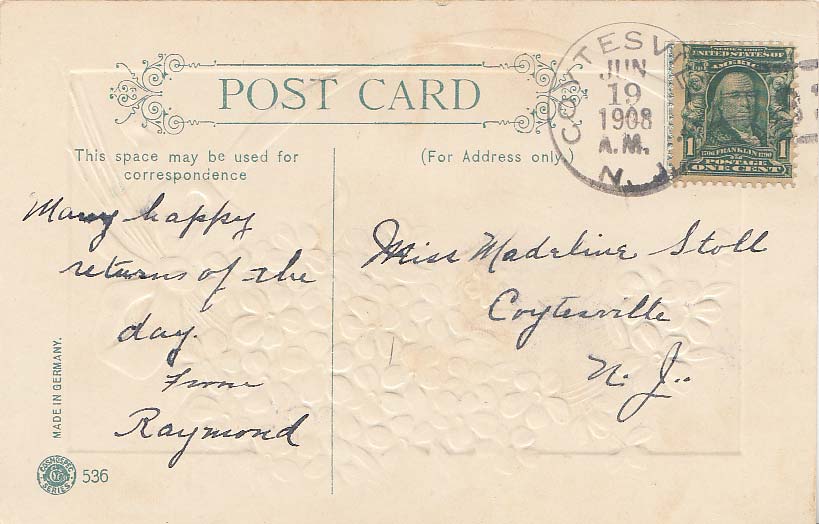 POST CARD
This space may be used for
correspondence
(For Address only.)
COYTESVILLE
JUN
19
1908
A.M.
N. J.
SERIES 1902
UNITED STATES OF
AMERICA
1 FRANKLIN 1
POSTAGE
ONE CENT
Many happy
returns of the
day.
From
Raymond
Miss Madeline Stoll
Coytesville
N. J.
MADE IN GERMANY.
SERIES
536